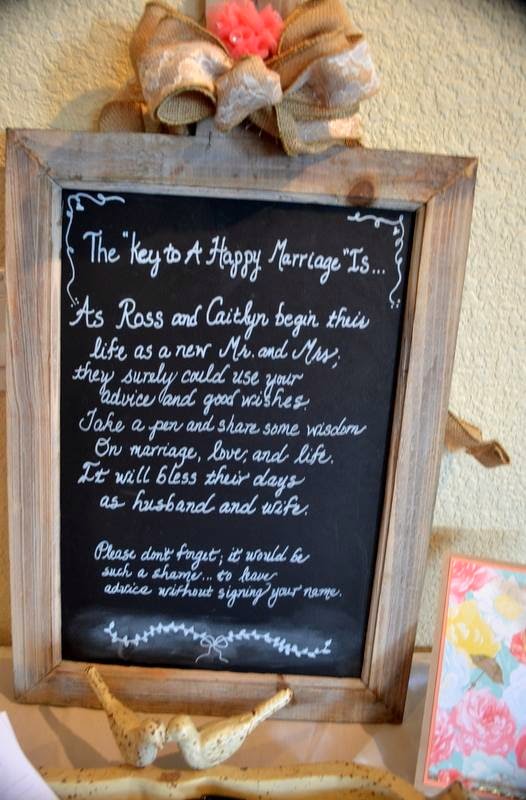 The "Key to A Happy Marriage" Is...
As Ross and Caitlyn begin their
life as a new Mr. and Mrs;
they surely could use your
advice and good wishes.
Take a pen and share some wisdom
On marriage, love, and life.
It will bless their days
as husband and wife.
Please don't forget; it would be
such a shame... to leave
advice without signing your name.